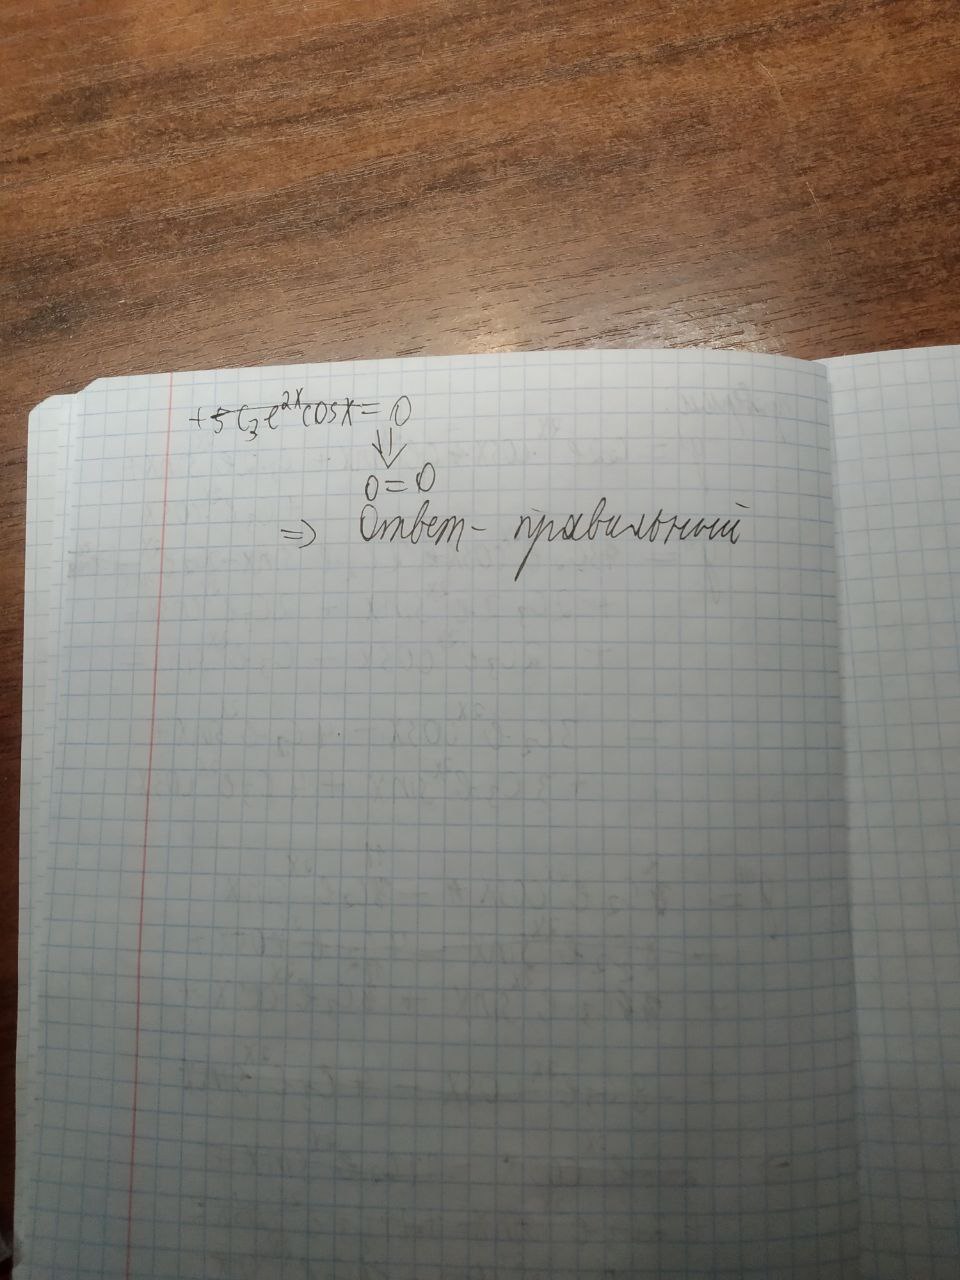 +5C₃e^{2x}cosx = 0
⇓
0 = 0
⇒ Ответ - правильный